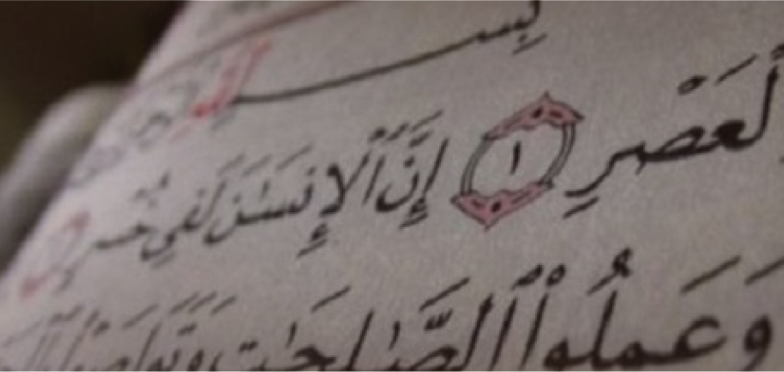 بِسـ
لْعَصْرِ ١ إِنَّ ٱلْإِنسَـٰنَ لَفِي خُسْرٍ
وَعَمِلُوا۟ ٱلصَّـٰلِحَـٰتِ وَتَوَاصَوْا۟